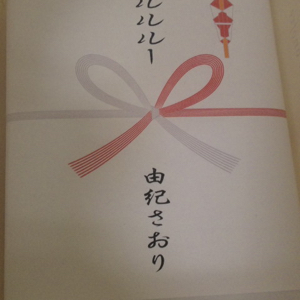 ルルルー
由紀さおり